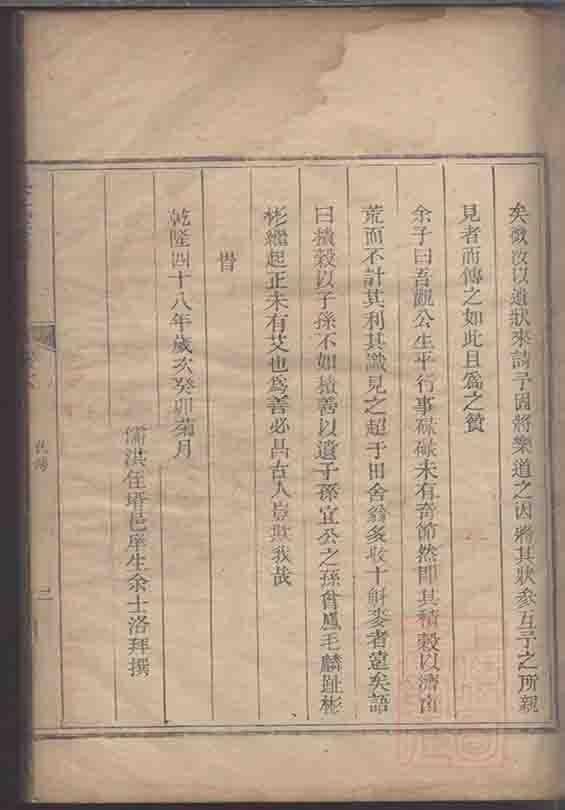 矣微汝以遺狀來請予固將樂道之因將其狀參互予之所親
見者而傳之如此且為之贊
余子曰吾觀公生平行事碌碌未有奇節然即其積穀以濟
荒而不計其利其識見之超于田舍翁多收十斛麥者遠矣語
曰積穀以子孫不如積善以遺子孫宜公之孫曾鳳毛麟趾彬
彬繼起正未有艾也為善必昌古人豈欺我哉
旹
乾隆四十八年歲次癸卯菊月
儒洪侄壻邑庠生余士洛拜撰
二